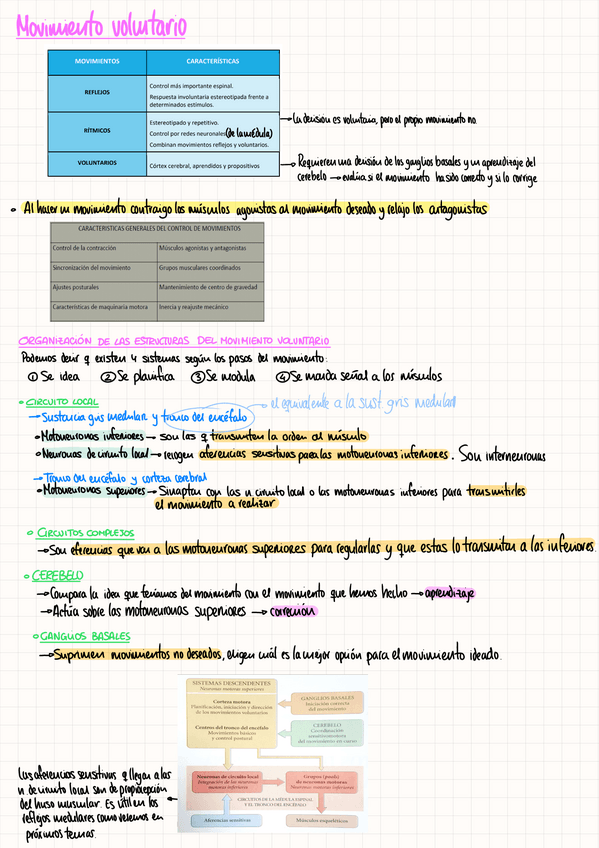 Movimiento voluntario
MOVIMIENTOS CARACTERÍSTICAS
REFLEJOS
Control más importante espinal.
Respuesta involuntaria estereotipada frente a
determinados estímulos.
RÍTMICOS
Estereotipado y repetitivo.
Control por redes neuronales (de la médula)
Combinan movimientos reflejos y voluntarios.
→ La decisión es voluntaria, pero el propio movimiento no.
VOLUNTARIOS
Córtex cerebral, aprendidos y propositivos
→ Requieren una decisión de los ganglios basales y un aprendizaje del
cerebelo → evalúa si el movimiento ha sido correcto y si lo corrige
• Al hacer un movimiento contraigo los músculos agonistas al movimiento deseado y relajo los antagonistas
CARACTERISTICAS GENERALES DEL CONTROL DE MOVIMIENTOS
Control de la contracción Músculos agonistas y antagonistas
Sincronización del movimiento Grupos musculares coordinados
Ajustes posturales Mantenimiento de centro de gravedad
Características de maquinaria motora Inercia y reajuste mecánico
ORGANIZACIÓN DE LAS ESTRUCTURAS DEL MOVIMIENTO VOLUNTARIO
Podemos decir q existen 4 sistemas según los pasos del movimiento:
① Se idea ② Se planifica ③ Se modula ④ Se manda señal a los músculos
• CIRCUITO LOCAL
→ Sustancia gris medular y tronco del encéfalo → el equivalente a la sust gris medular
• Motoneuronas inferiores → son las q transmiten la orden al músculo
• Neuronas de circuito local → recogen aferencias sensitivas para las motoneuronas inferiores. Son interneuronas
→ Tronco del encéfalo y corteza cerebral
• Motoneuronas superiores → Sinaptan con las n circuito local o las motoneuronas inferiores para transmitirles
el movimiento a realizar
• CIRCUITOS COMPLEJOS
→ Son eferencias que van a las motoneuronas superiores para regularlas y que estas lo transmitan a las inferiores.
• CEREBELO
→ Compara la idea que teníamos del movimiento con el movimiento que hemos hecho → aprendizaje
→ Actúa sobre las motoneuronas superiores → corrección
• GANGLIOS BASALES
→ Suprimen movimientos no deseados, eligen cuál es la mejor opción para el movimiento ideado.
SISTEMAS DESCENDENTES
Neuronas motoras superiores
Corteza motora
Planificación, iniciación y dirección
de los movimientos voluntarios
Centros del tronco del encéfalo
Movimientos básicos
y control postural
GANGLIOS BASALES
Iniciación correcta
del movimiento
CEREBELO
Coordinación
sensitivomotora
del movimiento en curso
Neuronas de circuito local
Integración de las neuronas
motoras inferiores
Grupos (pools)
de neuronas motoras
Neuronas motoras inferiores
CIRCUITOS DE LA MÉDULA ESPINAL
Y EL TRONCO DEL ENCÉFALO
Aferencias sensitivas
Músculos esqueléticos
Las aferencias sensitivas q llegan a las
n de circuito local son de propiocepción
del huso muscular. Es útil en los
reflejos medulares como veremos en
próximos temas.